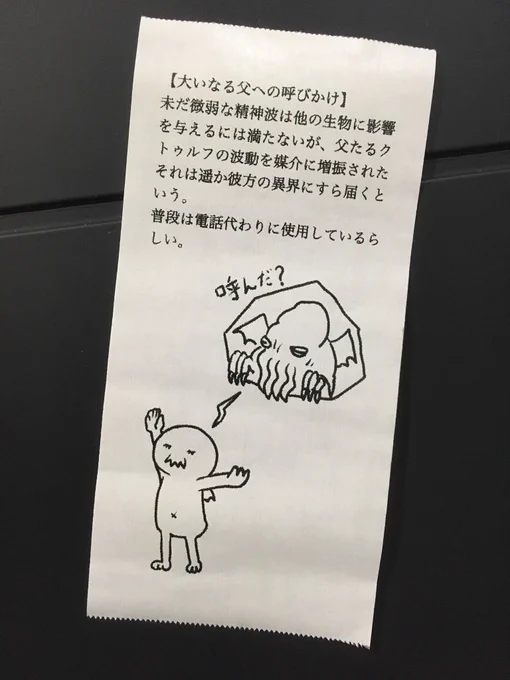 【大いなる父への呼びかけ】
未だ微弱な精神波は他の生物に影響
を与えるには満たないが、父たるク
トゥルフの波動を媒介に増振された
それは遥か彼方の異界にすら届くと
いう。
普段は電話代わりに使用しているら
しい。
呼んだ?